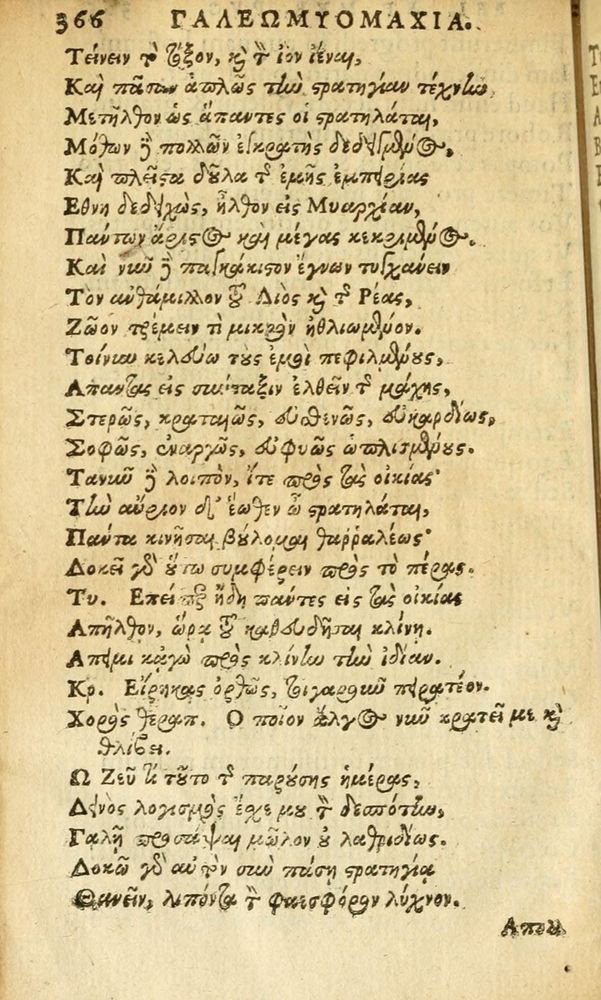 366 ΓΑΛΕΩΜΥΟΜΑΧΙΑ.
Τείνειν τὸ τόξον, καὶ τὸν ἰὸν ἱέναι,
Καὶ πᾶσαν ἁπλῶς τὴν στρατηγίαν τέχνην,
Μετῆλθον ὡς ἅπαντες οἱ στρατηλάται,
Μόθων δὲ πολλῶν ἐγκρατὴς δεδειγμένος,
Καὶ πλεῖστα δοῦλα τῆς ἐμῆς ἐμπειρίας
Εθνη δεδειχὼς, ἦλθον εἰς Μυαρχίαν,
Πάντων ἄριστος καὶ μέγας κεκριμένος.
Καὶ νῦν δὲ παγκάκιστον ἔγνων τυγχάνειν
Τὸν ἀνθάμιλλον τοῦ Διὸς καὶ τῆς Ρέας,
Ζῶον τρέμειν τὶ μικρὸν ἠθλιωμένον.
Τοίνυν κελεύω τοὺς ἐμοὶ πεφιλμένους,
Απαντας εἰς σύνταξιν ἐλθεῖν τῆς μάχης,
Στερῶς, κραταιῶς, εὐθενῶς, εὐκαρδίως,
Σοφῶς, ἐναργῶς, εὐφυῶς ὡπλισμένους.
Τανῦν δὲ λοιπὸν, ἴτε πρὸς τὰς οἰκίας·
Τὴν αὔριον δ' ἕωθεν ὦ στρατηλάται,
Πάντα κινῆσαι βούλομαι θαρραλέως·
Δοκεῖ γὰρ οὕτω συμφέρειν πρὸς τὸ πέρας.
Τυ. Επεί περ ἤδη πάντες εἰς τὰς οἰκίας
Απῆλθον, ὥρα τοῦ καθευδῆσαι κλίνῃ.
Απειμι κᾀγὼ πρὸς κλίνην τὴν ἰδίαν.
Κρ. Εἴρηκας ὀρθῶς, τιγαροῦν πειρατέον.
Χορὸς θεραπ. Ο ποῖον ἄλγος νῦν κρατεῖ με καὶ
θλίβει.
Ω Ζεῦ καὶ τοῦτο τῆς παρούσης ἡμέρας,
Δεινὸς λογισμὸς ἔχε μου τὸν δεσπότην,
Γαλῇ προσάψαι μῶλον οὐ λαθριδίως.
Δοκῶ γὰρ αὐτὸν σὺν πάσῃ στρατηγίᾳ
Θανεῖν, λιπόντα τὸν φαεσφόρον λύχνον.
Απου